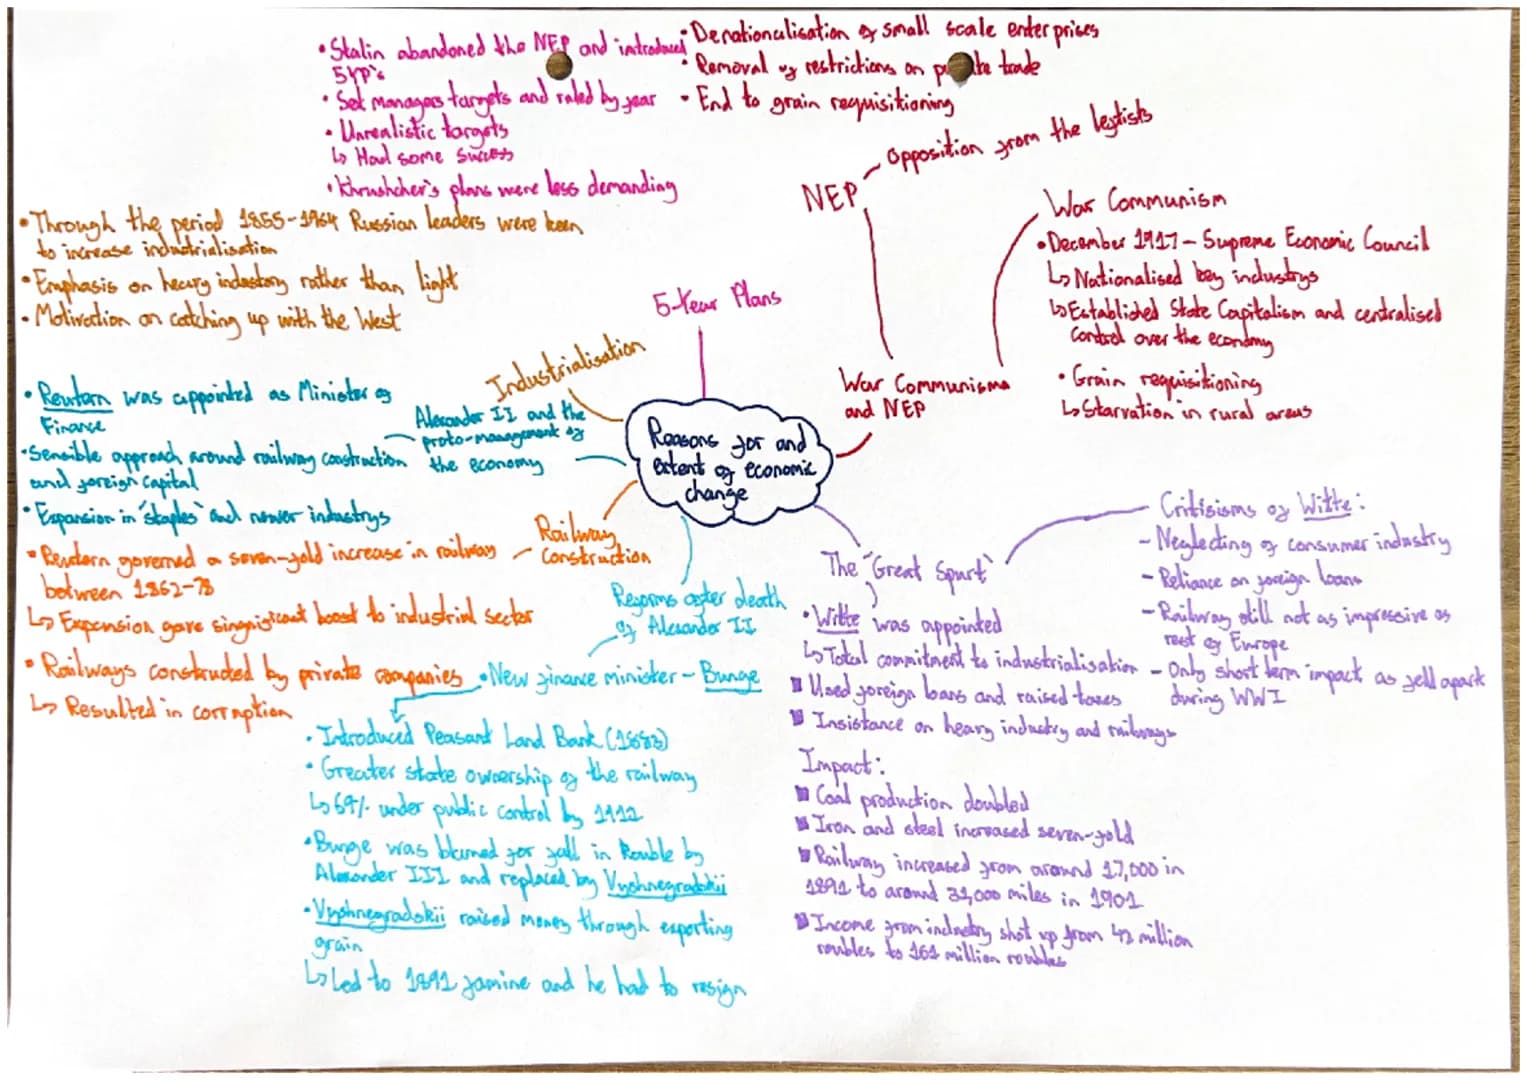 Reasons for and
extent of economic
change
5-Year Plans
• Stalin abandoned the NEP and introduced
5YP's
• Set managers targets and ruled by fear
• Unrealistic targets
↳ Had some success
• Khrushchev's plans were less demanding
War Communism
and NEP
NEP
• Denationalisation of small scale enterprises
• Removal of restrictions on private trade
• End to grain requisitioning
opposition from the leftists
War Communism
• December 1917 - Supreme Economic Council
↳ Nationalised key industrys
↳ Established State Capitalism and centralised
control over the economy
• Grain requisitioning
↳ Starvation in rural areas
The 'Great Spurt'
• Witte was appointed
↳ Total commitment to industrialisation
Used foreign loans and raised taxes
Insistance on heavy industry and railways
Impact:
Coal production doubled
Iron and steel increased seven-fold
Railway increased from around 17,000 in
1891 to around 31,000 miles in 1901
Income from industry shot up from 42 million
roubles to 161 million roubles
Critisisms of Witte:
- Neglecting of consumer industry
- Reliance on foreign loans
- Railway still not as impressive as
rest of Europe
- Only short term impact as fell apart
during WWI
Reforms after death
of Alexander II
• New finance minister - Bunge
• Introduced Peasant Land Bank (1883)
• Greater state ownership of the railway
↳ 69% under public control by 1912
• Bunge was blamed for fall in Rouble by
Alexander III and replaced by Vyshnegradskii
• Vyshnegradskii raised money through exporting
grain
↳ Led to 1891 famine and he had to resign
Railway
Construction
• Reutern governed a seven-fold increase in railway
between 1862-78
↳ Expension gave singnisicant boost to industrial sector
• Railways constructed by private companies
↳ Resulted in corruption
Alexander II and the
proto-management of
the economy
• Reutern was appointed as Minister of
Finance
• Sensible approach around railway construction
and foreign capital
• Expansion in 'staples' and newer industrys
Industrialisation
• Through the period 1855-1964 Russian leaders were keen
to increase industrialisation
• Emphasis on heavy industry rather than light
• Motivation on catching up with the West